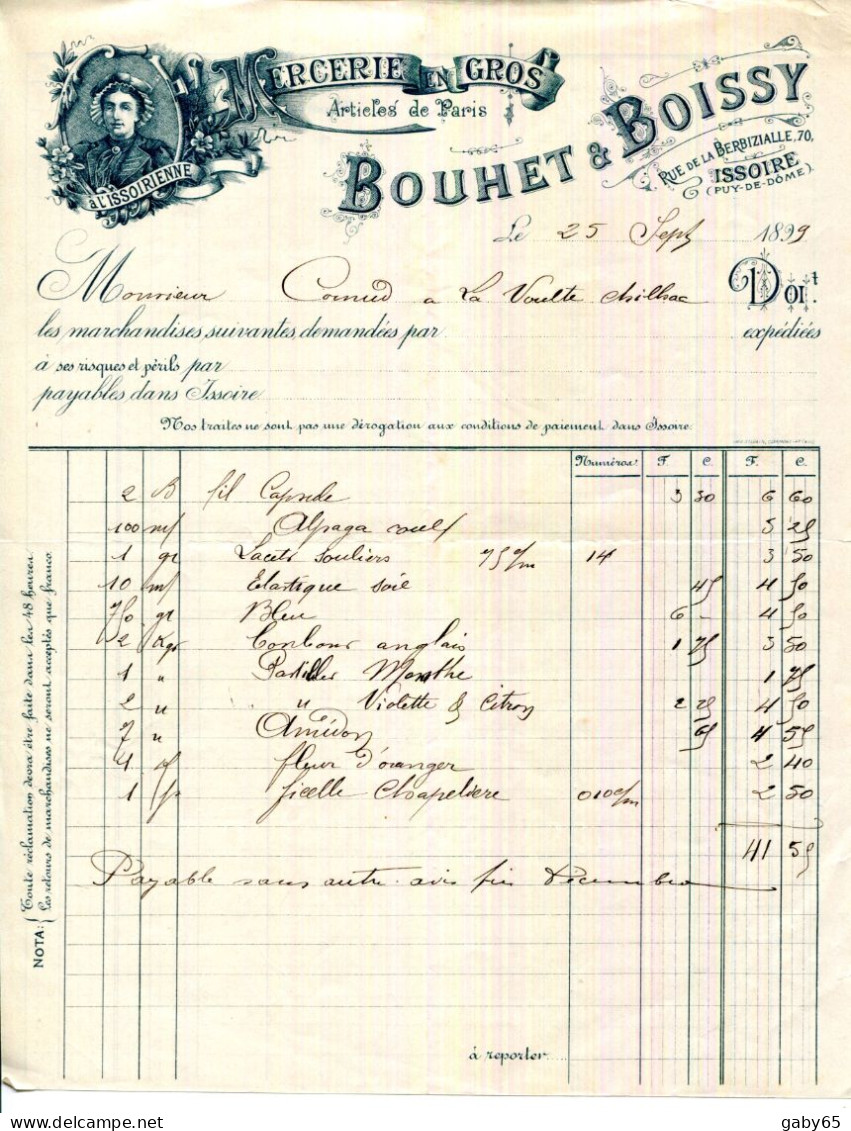 MERCERIE EN GROS
Articles de Paris
à L'ISSOIRIENNE
BOUHET & BOISSY
RUE DE LA BERBIZIALLE, 70,
ISSOIRE
(PUY-DE-DÔME)
Le 25 Sept 1899
Monsieur Cornud a La Voulte chilhac Doit
les marchandises suivantes, demandées par expédiées
à ses risques et périls par
payables dans Issoire
Nos traites ne sont pas une dérogation aux conditions de paiement dans Issoire.
Numéros F. C. F. C.
2 B fil Capsule 3 30 6 60
100 m/ Alpaga 5 25
1 gr Lacets souliers 75 c/m 14 3 50
10 m/ Elastique soie 45 4 50
750 gr Bleu 6 - 4 50
2 Kgr bonbons anglais 1 75 3 50
1 " Pastilles Menthe 1 75
2 " " Violette & Citron 2 25 4 50
7 " Amidon 65 4 55
4 fleur d'oranger 2 40
1 ficelle Chapeliere 010 c/m 2 50
41 55
Payable sans autre avis fin Décembre
à reporter
NOTA: Toute réclamation devra être faite dans les 48 heures.
Les retours de marchandises ne seront acceptés que franco.
gaby65